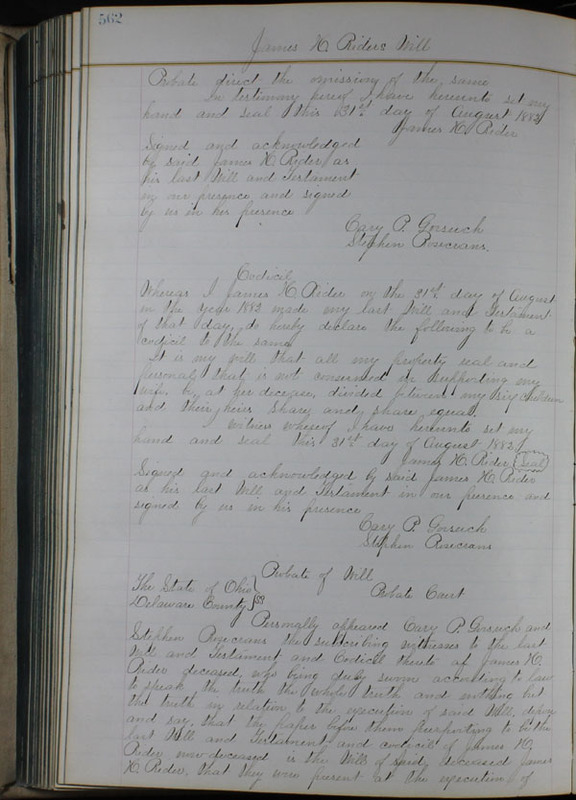 562
James H. Riders Will
Probate direct the omission of the same.
In testimony hereof I have hereunto set my
hand and seal this 31st day of August 1883
James H. Rider
Signed and acknowledged
by said James H. Rider as
his last Will and Testament
in our presence and signed
by us in his presence
Cary P. Gorsuch
Stephen Rosecrans.
Codicil
Whereas I James H. Rider on the 31st day of August
in the year 1883 made my last Will and Testament
of that day, do hereby declare the following to be a
codicil to the same
It is my will that all my property real and
personal that is not consumed in supporting my
wife be, at her decease, divided between my six children
and their heirs share and share equal.
I witness whereof I have hereunto set my
hand and seal this 31st day of August 1883
James H. Rider (Seal)
Signed and acknowledged by said James H. Rider
as his last Will and Testament in our presence and
signed by us in his presence
Cary P. Gorsuch
Stephen Rosecrans
Probate of Will
The State of Ohio } Probate Court
Delaware County } SS
Personally appeared Cary P. Gorsuch and
Stephen Rosecrans the subscribing witnesses to the last
Will and Testament and Codicil thereto of James H.
Rider deceased, who being duly sworn according to law
to speak the truth the whole truth and nothing but
the truth in relation to the execution of said Will, depose
and say, that the paper before them purporting to be the
last Will and Testament and codycil of James H.
Rider now deceased is the Will of said deceased James
H. Rider, that they were present at the execution of